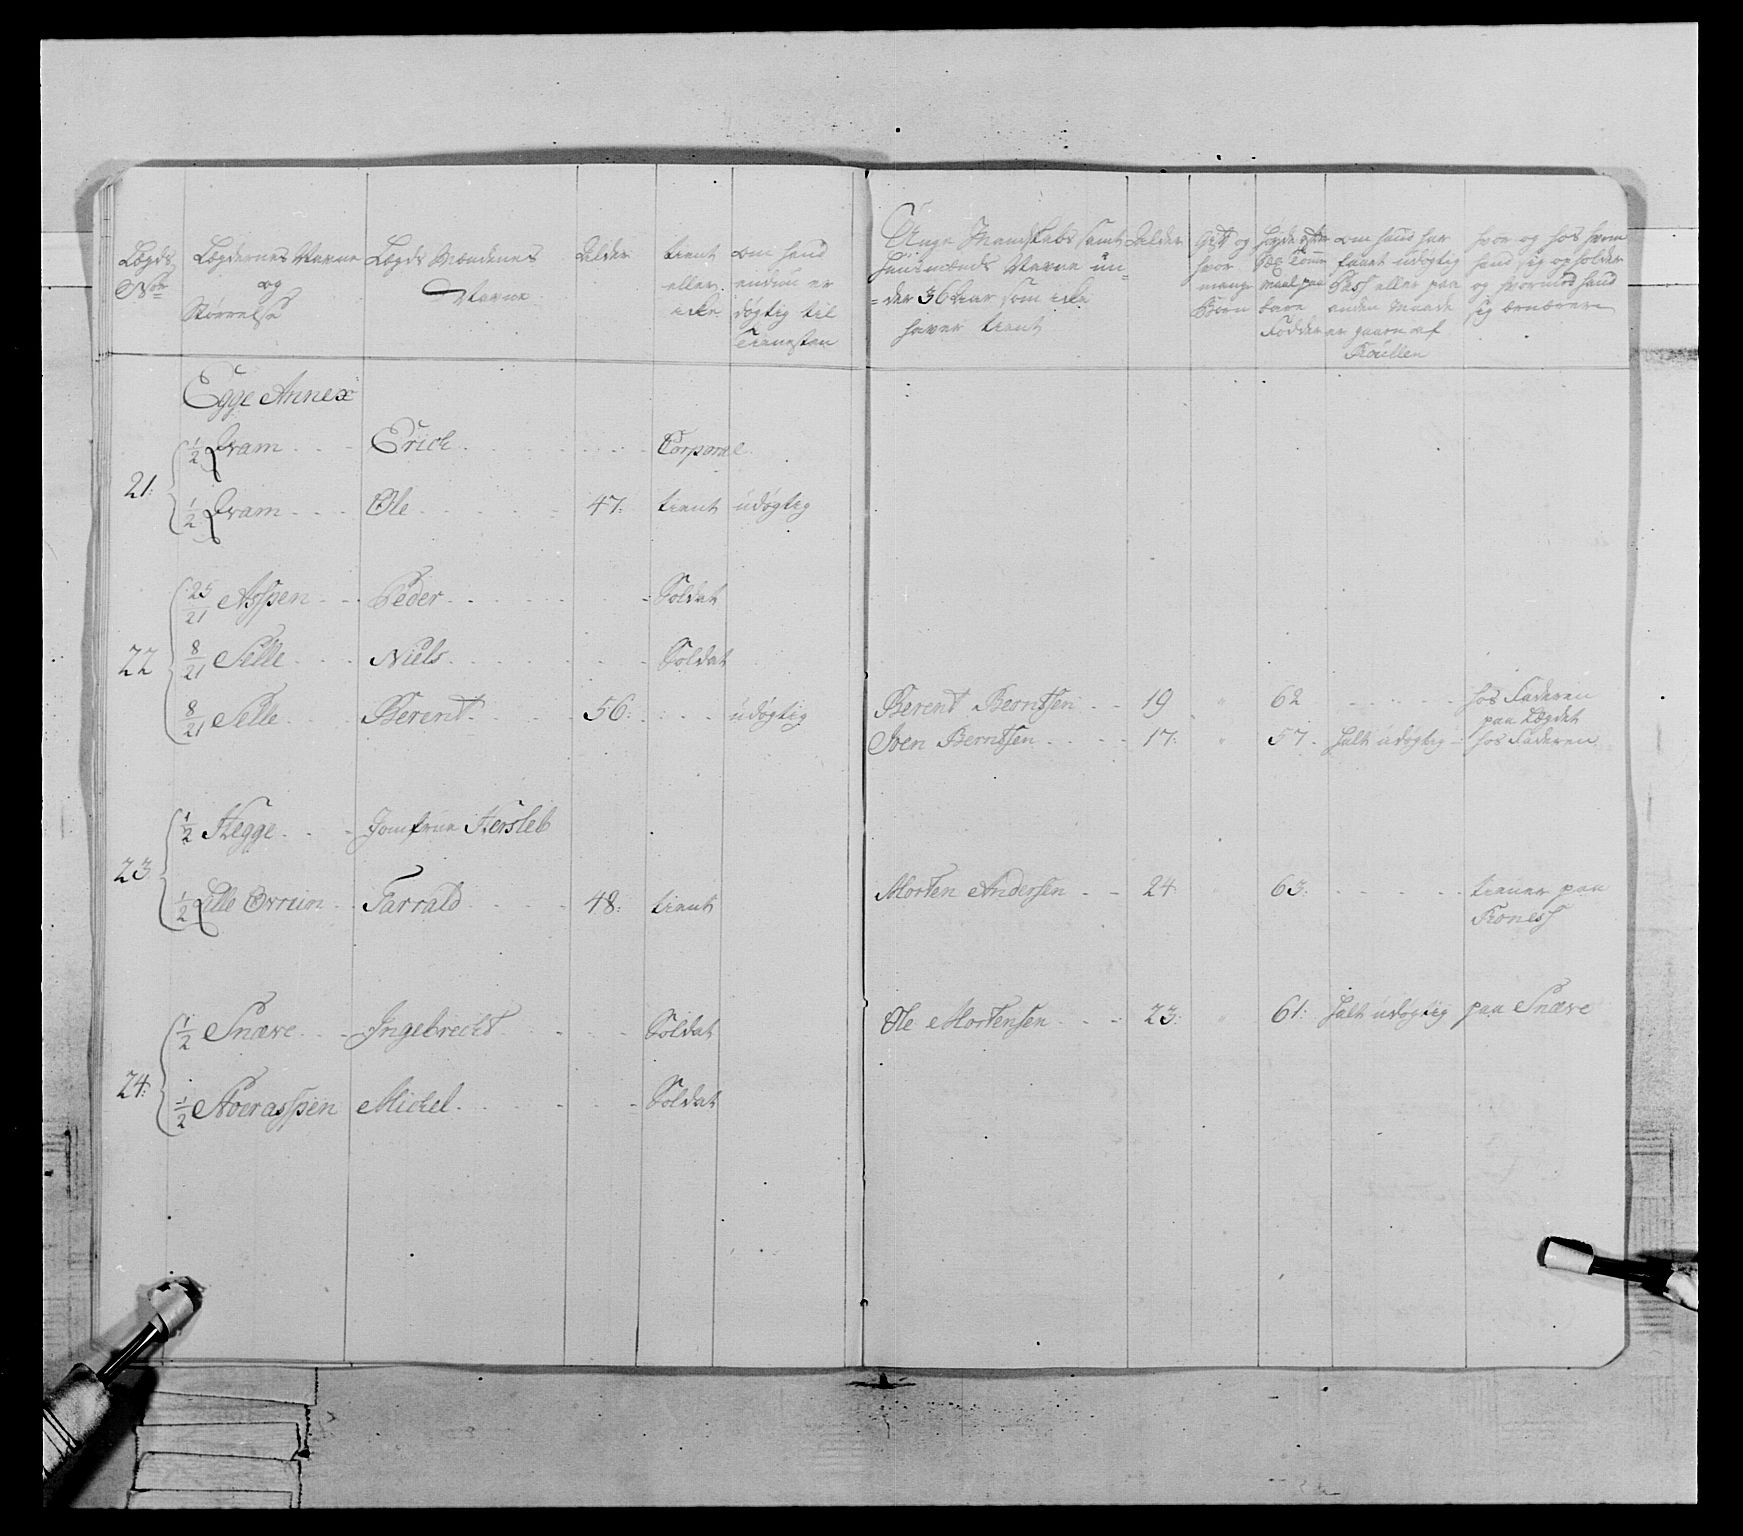 Lægds
No
Lægdernes Navne
og
Størrelse
Lægds Mændenes
Navne
Alder
tient
eller
icke
om hand
endnu er
døgtig til
Tienesten
Unge Mandskabs samt
Huusmænds Navne un
der 36 Aar som icke
haver tient
Alder
Gift og
hvor
mange
Børn
Høyde efter
Sex Tomme
maal paa
bare
Fødder
om hand har
faaet udøgtig
Pass eller paa
anden Maade
er gaaen af
Roullen
hvor og hos hvem
hand sig opholder
og hvormed hand
sig ernærer
Egge Annex
21:
1/2 Qvam Erich Corporal
1/2 Qvam Ole 47: tient udøgtig
22
25/21 Asspen Peder Soldat
8/21 Selle Niels Soldat
8/21 Selle Berent 56: udøgtig Berent Berntsen 19 " 62 hos Faderen
paa Lægdet
Sven Berntsen 17: " 57 halt udøgtig hos Faderen
23
1/2 Hegge Jomfrue Hersleb
1/2 Lille Ørrum Tarrald 48: tient Morten Andersen 24 " 63: tiener paa
Roness
24:
1/2 Snære Ingebrecht Soldat Ole Mortensen 23: " 61: halt udøgtig paa Snære
1/2 Hoerasspen Michel Soldat